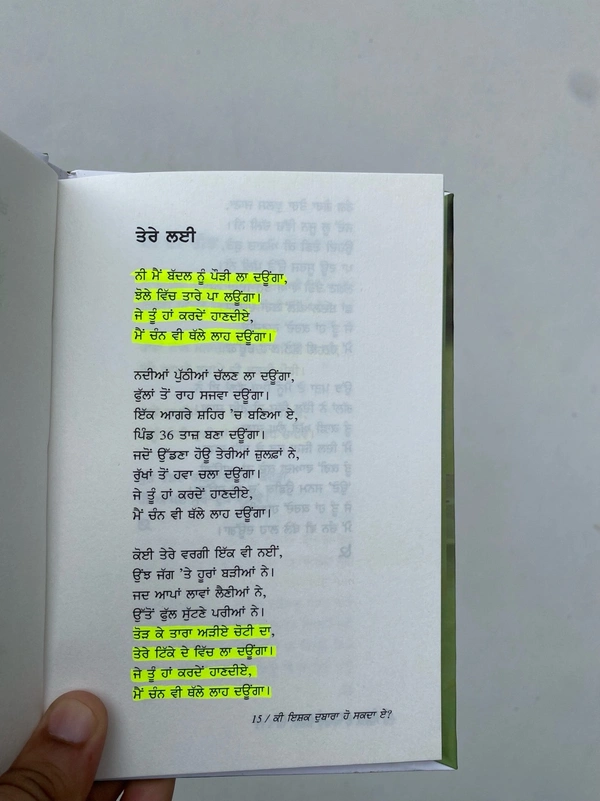 ਤੇਰੇ ਲਈ
ਨੀ ਮੈਂ ਬੱਦਲ ਨੂੰ ਪੌੜੀ ਲਾ ਦਊਂਗਾ,
ਝੋਲੇ ਵਿੱਚ ਤਾਰੇ ਪਾ ਲਊਂਗਾ।
ਜੇ ਤੂੰ ਹਾਂ ਕਰਦੇਂ ਹਾਣਦੀਏ,
ਮੈਂ ਚੰਨ ਵੀ ਥੱਲੇ ਲਾਹ ਦਊਂਗਾ।
ਨਦੀਆਂ ਪੁੱਠੀਆਂ ਚੱਲਣ ਲਾ ਦਊਂਗਾ,
ਫੁੱਲਾਂ ਤੋਂ ਰਾਹ ਸਜਵਾ ਦਊਂਗਾ।
ਇੱਕ ਆਗਰੇ ਸ਼ਹਿਰ 'ਚ ਬਣਿਆ ਏ,
ਪਿੰਡ 36 ਤਾਜ਼ ਬਣਾ ਦਊਂਗਾ।
ਜਦੋਂ ਉੱਡਣਾ ਹੋਊ ਤੇਰੀਆਂ ਜ਼ੁਲਫ਼ਾਂ ਨੇ,
ਰੁੱਖਾਂ ਤੋਂ ਹਵਾ ਚਲਾ ਦਊਂਗਾ।
ਜੇ ਤੂੰ ਹਾਂ ਕਰਦੇਂ ਹਾਣਦੀਏ,
ਮੈਂ ਚੰਨ ਵੀ ਥੱਲੇ ਲਾਹ ਦਊਂਗਾ।
ਕੋਈ ਤੇਰੇ ਵਰਗੀ ਇੱਕ ਵੀ ਨਈਂ,
ਉਂਝ ਜੱਗ 'ਤੇ ਹੂਰਾਂ ਬੜੀਆਂ ਨੇ।
ਜਦ ਆਪਾਂ ਲਾਵਾਂ ਲੈਣੀਆਂ ਨੇ,
ਉੱਤੋਂ ਫੁੱਲ ਸੁੱਟਣੇ ਪਰੀਆਂ ਨੇ।
ਤੋੜ ਕੇ ਤਾਰਾ ਅੜੀਏ ਚੋਟੀ ਦਾ,
ਤੇਰੇ ਟਿੱਕੇ ਦੇ ਵਿੱਚ ਲਾ ਦਊਂਗਾ।
ਜੇ ਤੂੰ ਹਾਂ ਕਰਦੇਂ ਹਾਣਦੀਏ,
ਮੈਂ ਚੰਨ ਵੀ ਥੱਲੇ ਲਾਹ ਦਊਂਗਾ।
15 / ਕੀ ਇਸ਼ਕ ਦੁਬਾਰਾ ਹੋ ਸਕਦਾ ਏ?